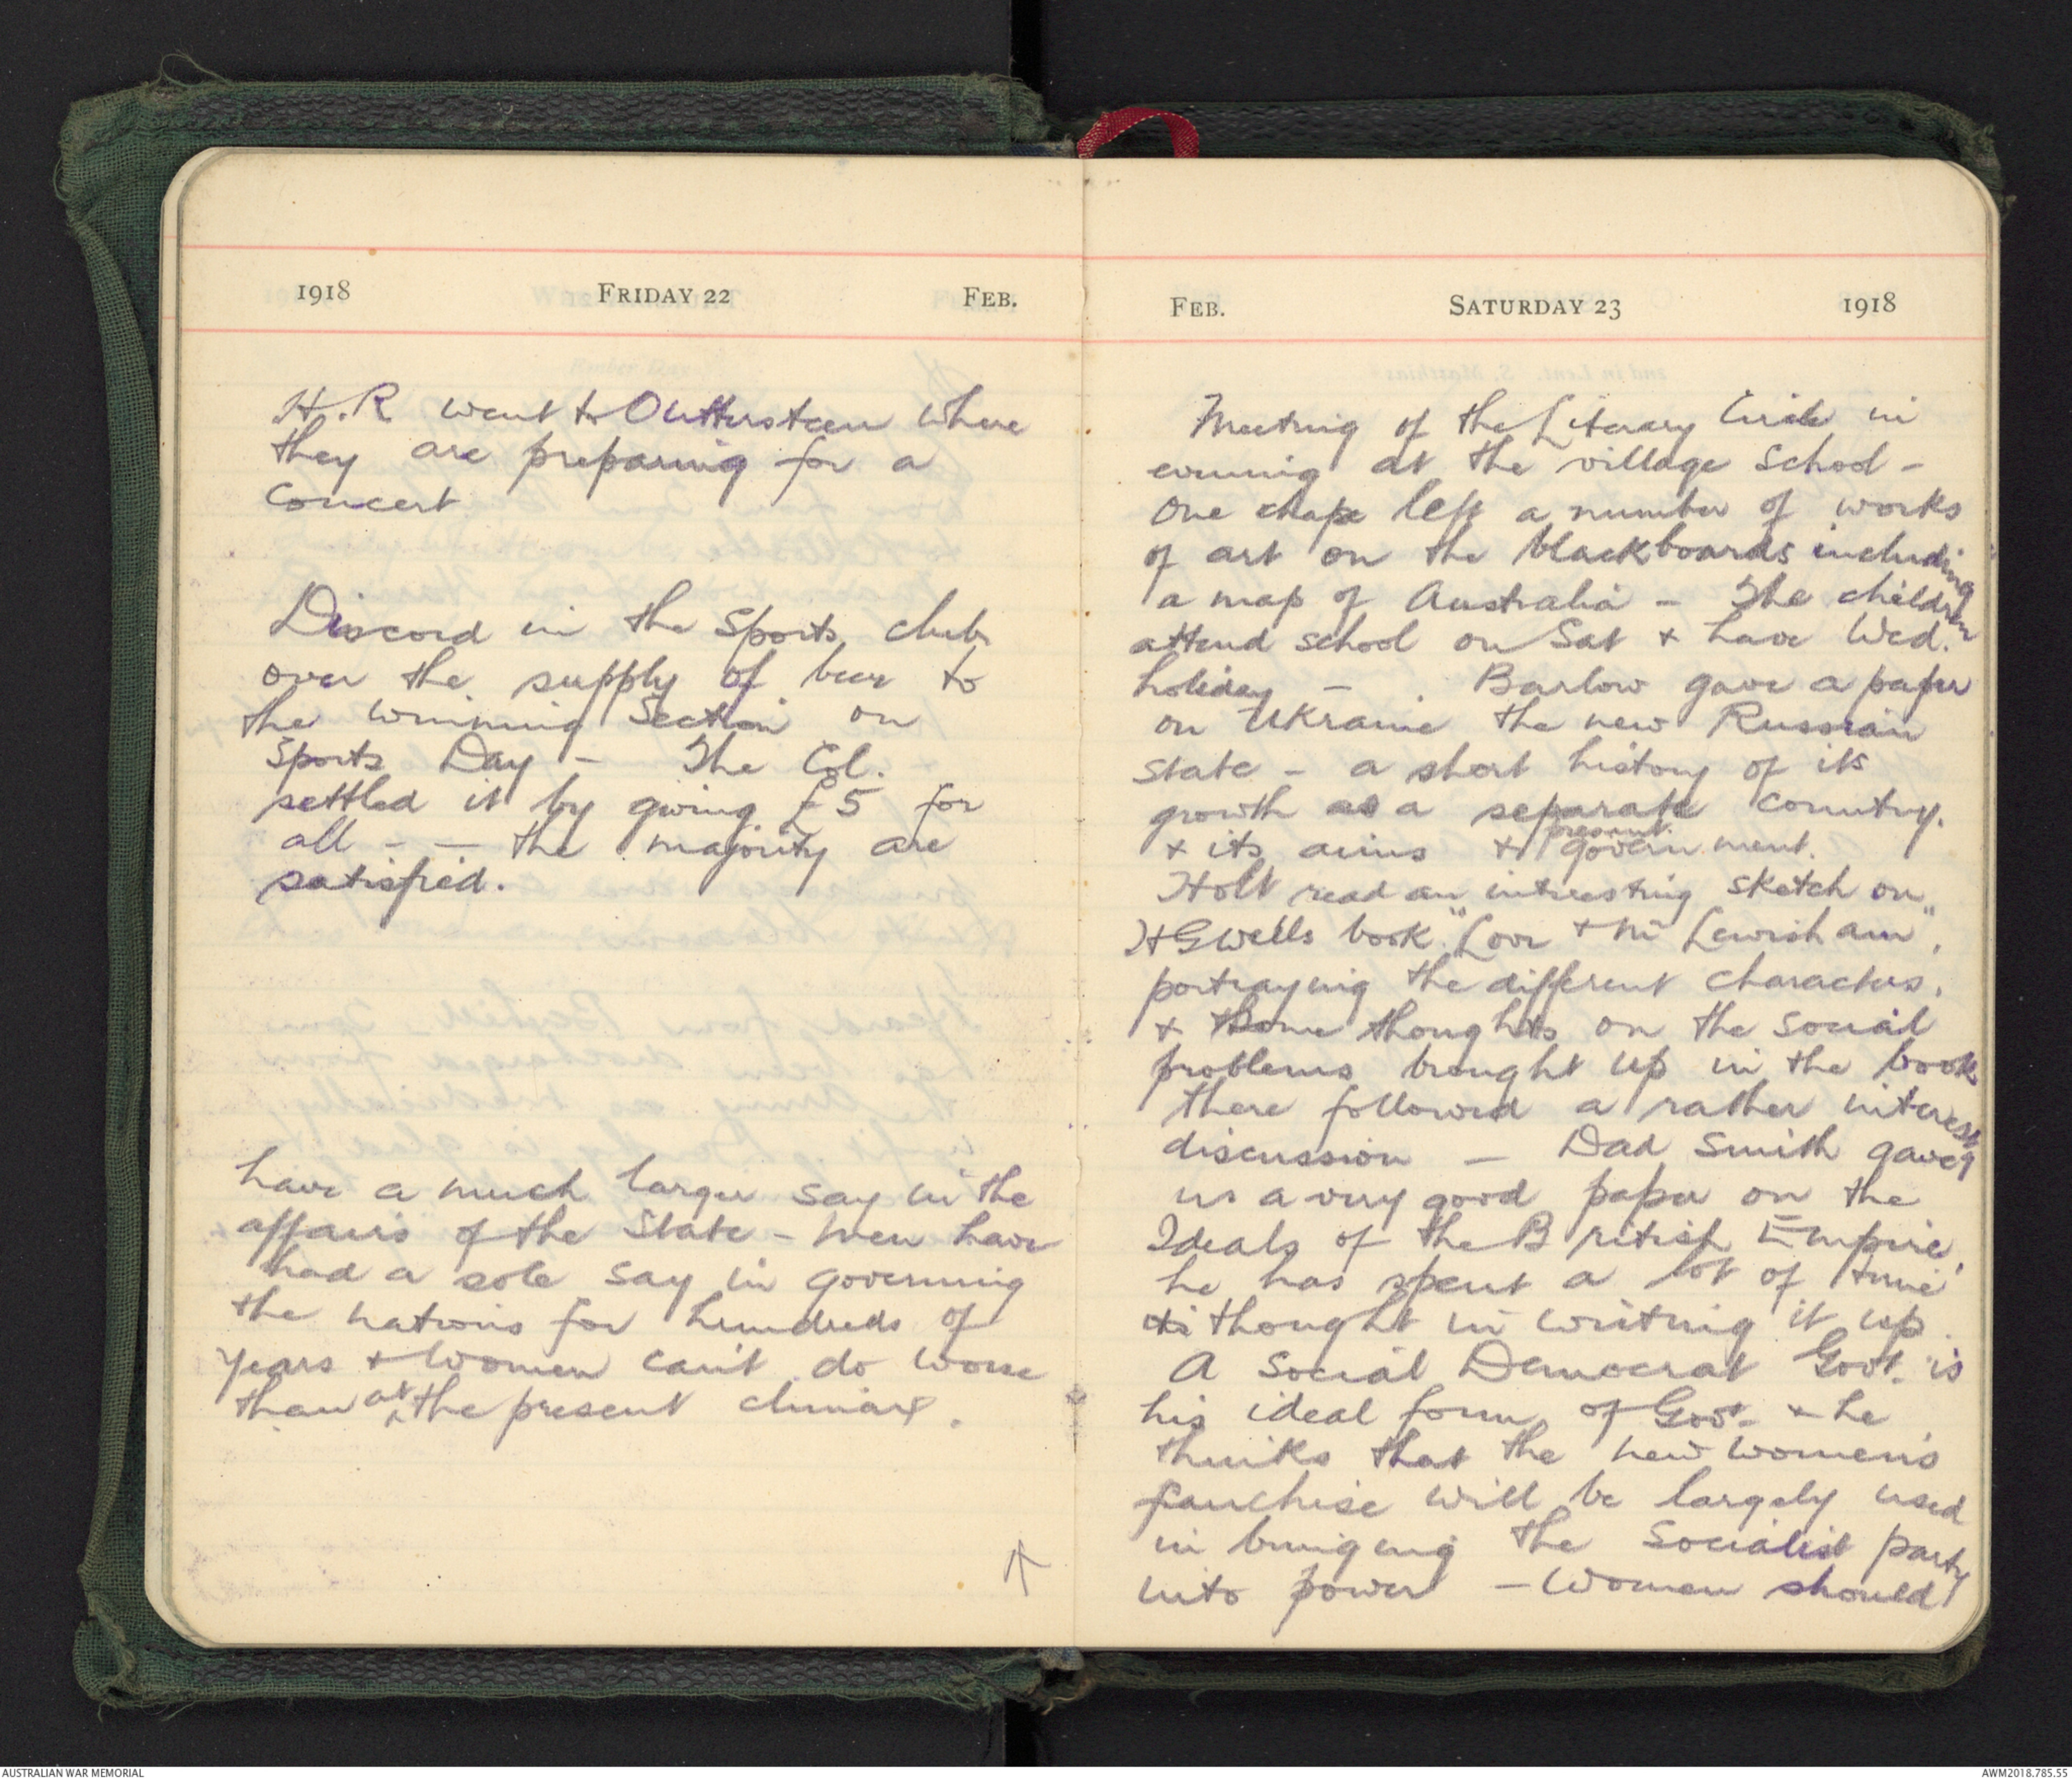 1918 FRIDAY 22 FEB.
H.R went to Outtersteen where
they are preparing for a
concert
Discord in the Sports club
over the supply of beer to
the winning Section on
Sports Day - The Col.
settled it by giving £5 for
all - - the majority are
satisfied.
have a much larger say in the
affairs of the State - Men have
had a sole say in governing
the nations for hundreds of
years & Women can't do worse
than at the present climax.
FEB. SATURDAY 23 1918
Meeting of the Literary Circle in
evening at the village School -
One chape left a number of works
of art on the blackboards including
a map of Australia - The children
attend school on Sat & have Wed.
holiday - . Barlow gave a paper
on Ukraine the new Russian
State - a short history of its
growth as a separate country.
& its aims & present government.
Holt read an interesting sketch on
H G Wells book "Love & Mr Lewisham",
portraying the different characters.
& thoughts on the social
problems brought up in the book
there followed a rather interestg
discussion - Dad Smith gave
us a very good paper on the
Ideals of the British Empire,
he has spent a lot of time
& thought in writing it up.
A Social Democrat Govt. is
his ideal form of Govt. & he
thinks that the new women's
franchise will be largely used
in bringing the Socialist party
into power - Women should
AUSTRALIAN WAR MEMORIAL
AWM2018.785.55